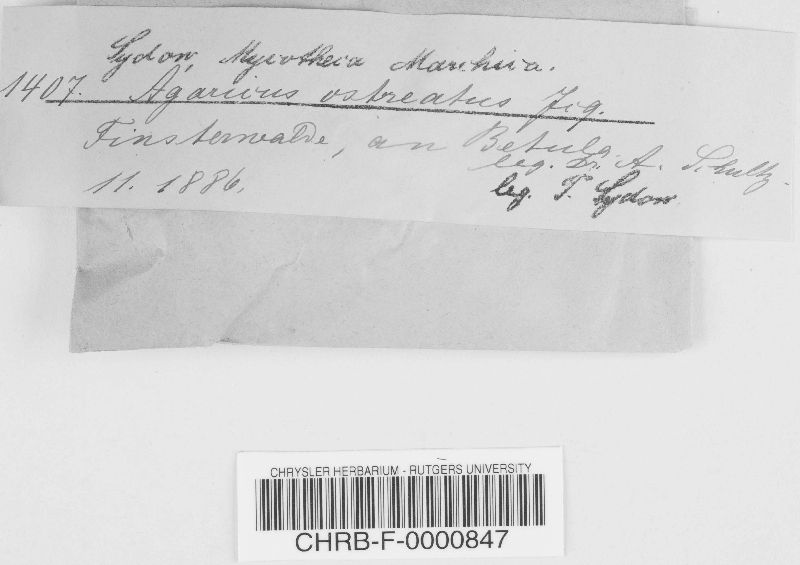 Sydow, Mycotheca Marchica.
1407. Agaricus ostreatus Jcq.
Finsterwalde, an Betula.
leg. Dr. A. Schultz.
11. 1886.
leg. P. Sydow.
CHRYSLER HERBARIUM - RUTGERS UNIVERSITY
CHRB-F-0000847